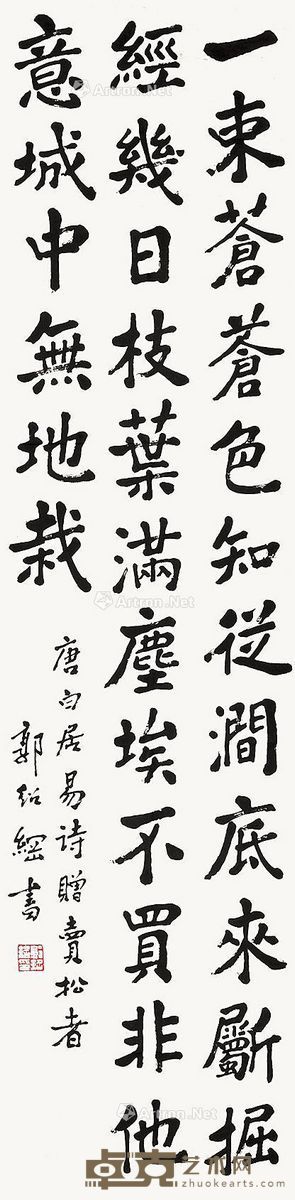 一束蒼蒼色知從澗底來斸掘
經幾日枝葉滿塵埃不買非他
意城中無地栽
唐白居易詩贈賣松者
郭紹綱書
Artron.Net
Artron.Net
Artron.Net
卓克艺术网
www.zhuokearts.com